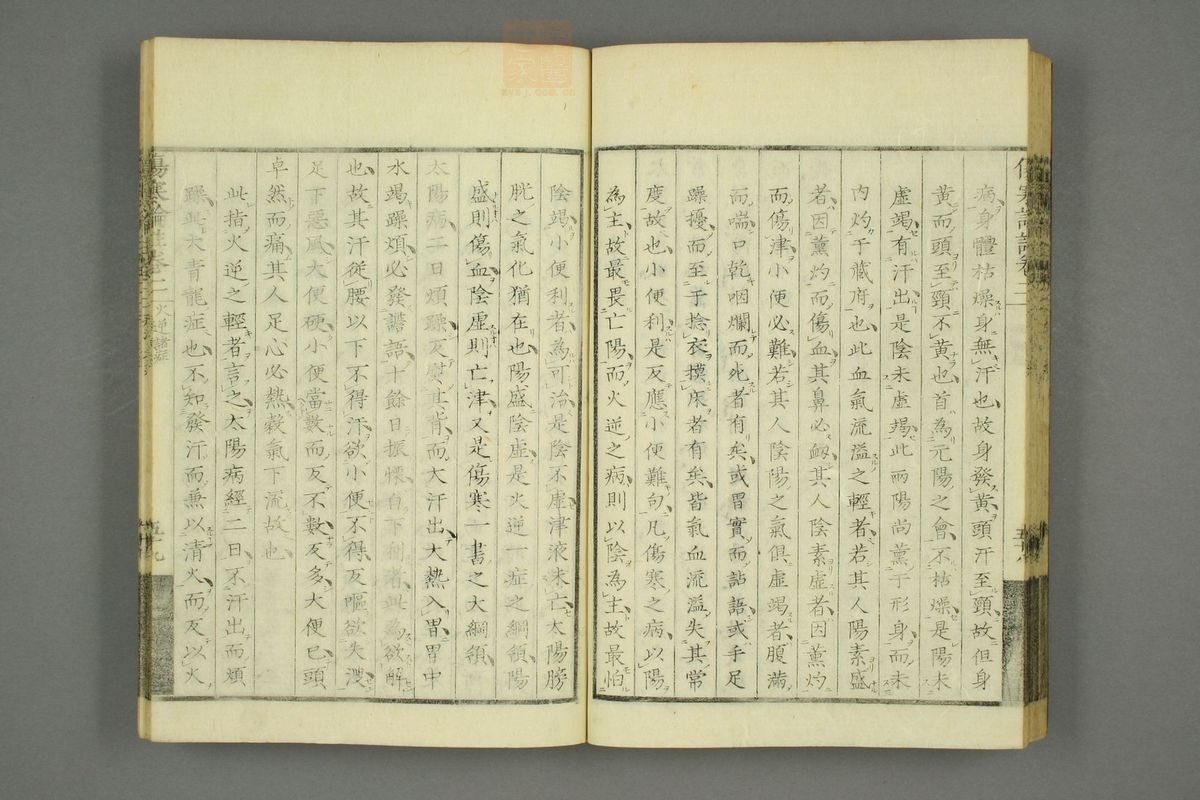 病身體枯燥身無汗也故身發黃頭汗至頸故但身
黃而頭至頸不黃也首為元陽之會不枯燥是陽未
虛竭有汗出是陰未虛竭此兩陽尚薰于形身而未
內灼于藏府也此血氣流溢之輕者若其人陽素盛
者因薰灼而傷血其鼻必衂其人陰素虛者因薰灼
而傷津小便必難若其人陰陽之氣俱虛竭者腹滿
而喘口乾咽爛而死者有矣或胃實而讝語或手足
躁擾而至于捻衣摸床者有矣皆氣血流溢失其常
度故也小便利是反應小便難句凡傷寒之病以陽
為主故最畏亡陽而火逆之病則以陰為主故最怕
陰竭小便利者為可治是陰不虛津液未亡太陽膀
胱之氣化猶在也陽盛陰虛是火逆一症之綱領陽
盛則傷血陰虛則亡津又是傷寒一書之大綱領
太陽病二日煩躁反熨其背而大汗出大熱入胃胃中
水竭躁煩必發譫語十餘日振慄自下利者此為欲解
也故其汗從腰以下不得汗欲小便不得反嘔欲失溲
足下惡風大便硬小便當數而反不數及多大便已頭
卓然而痛其人足心必熱穀氣下流故也
此指火逆之輕者言之太陽病經二日不汗出而煩
躁此大青龍症也不知發汗而兼以清火而反以火
傷寒論註卷二 火逆諸症
五十九